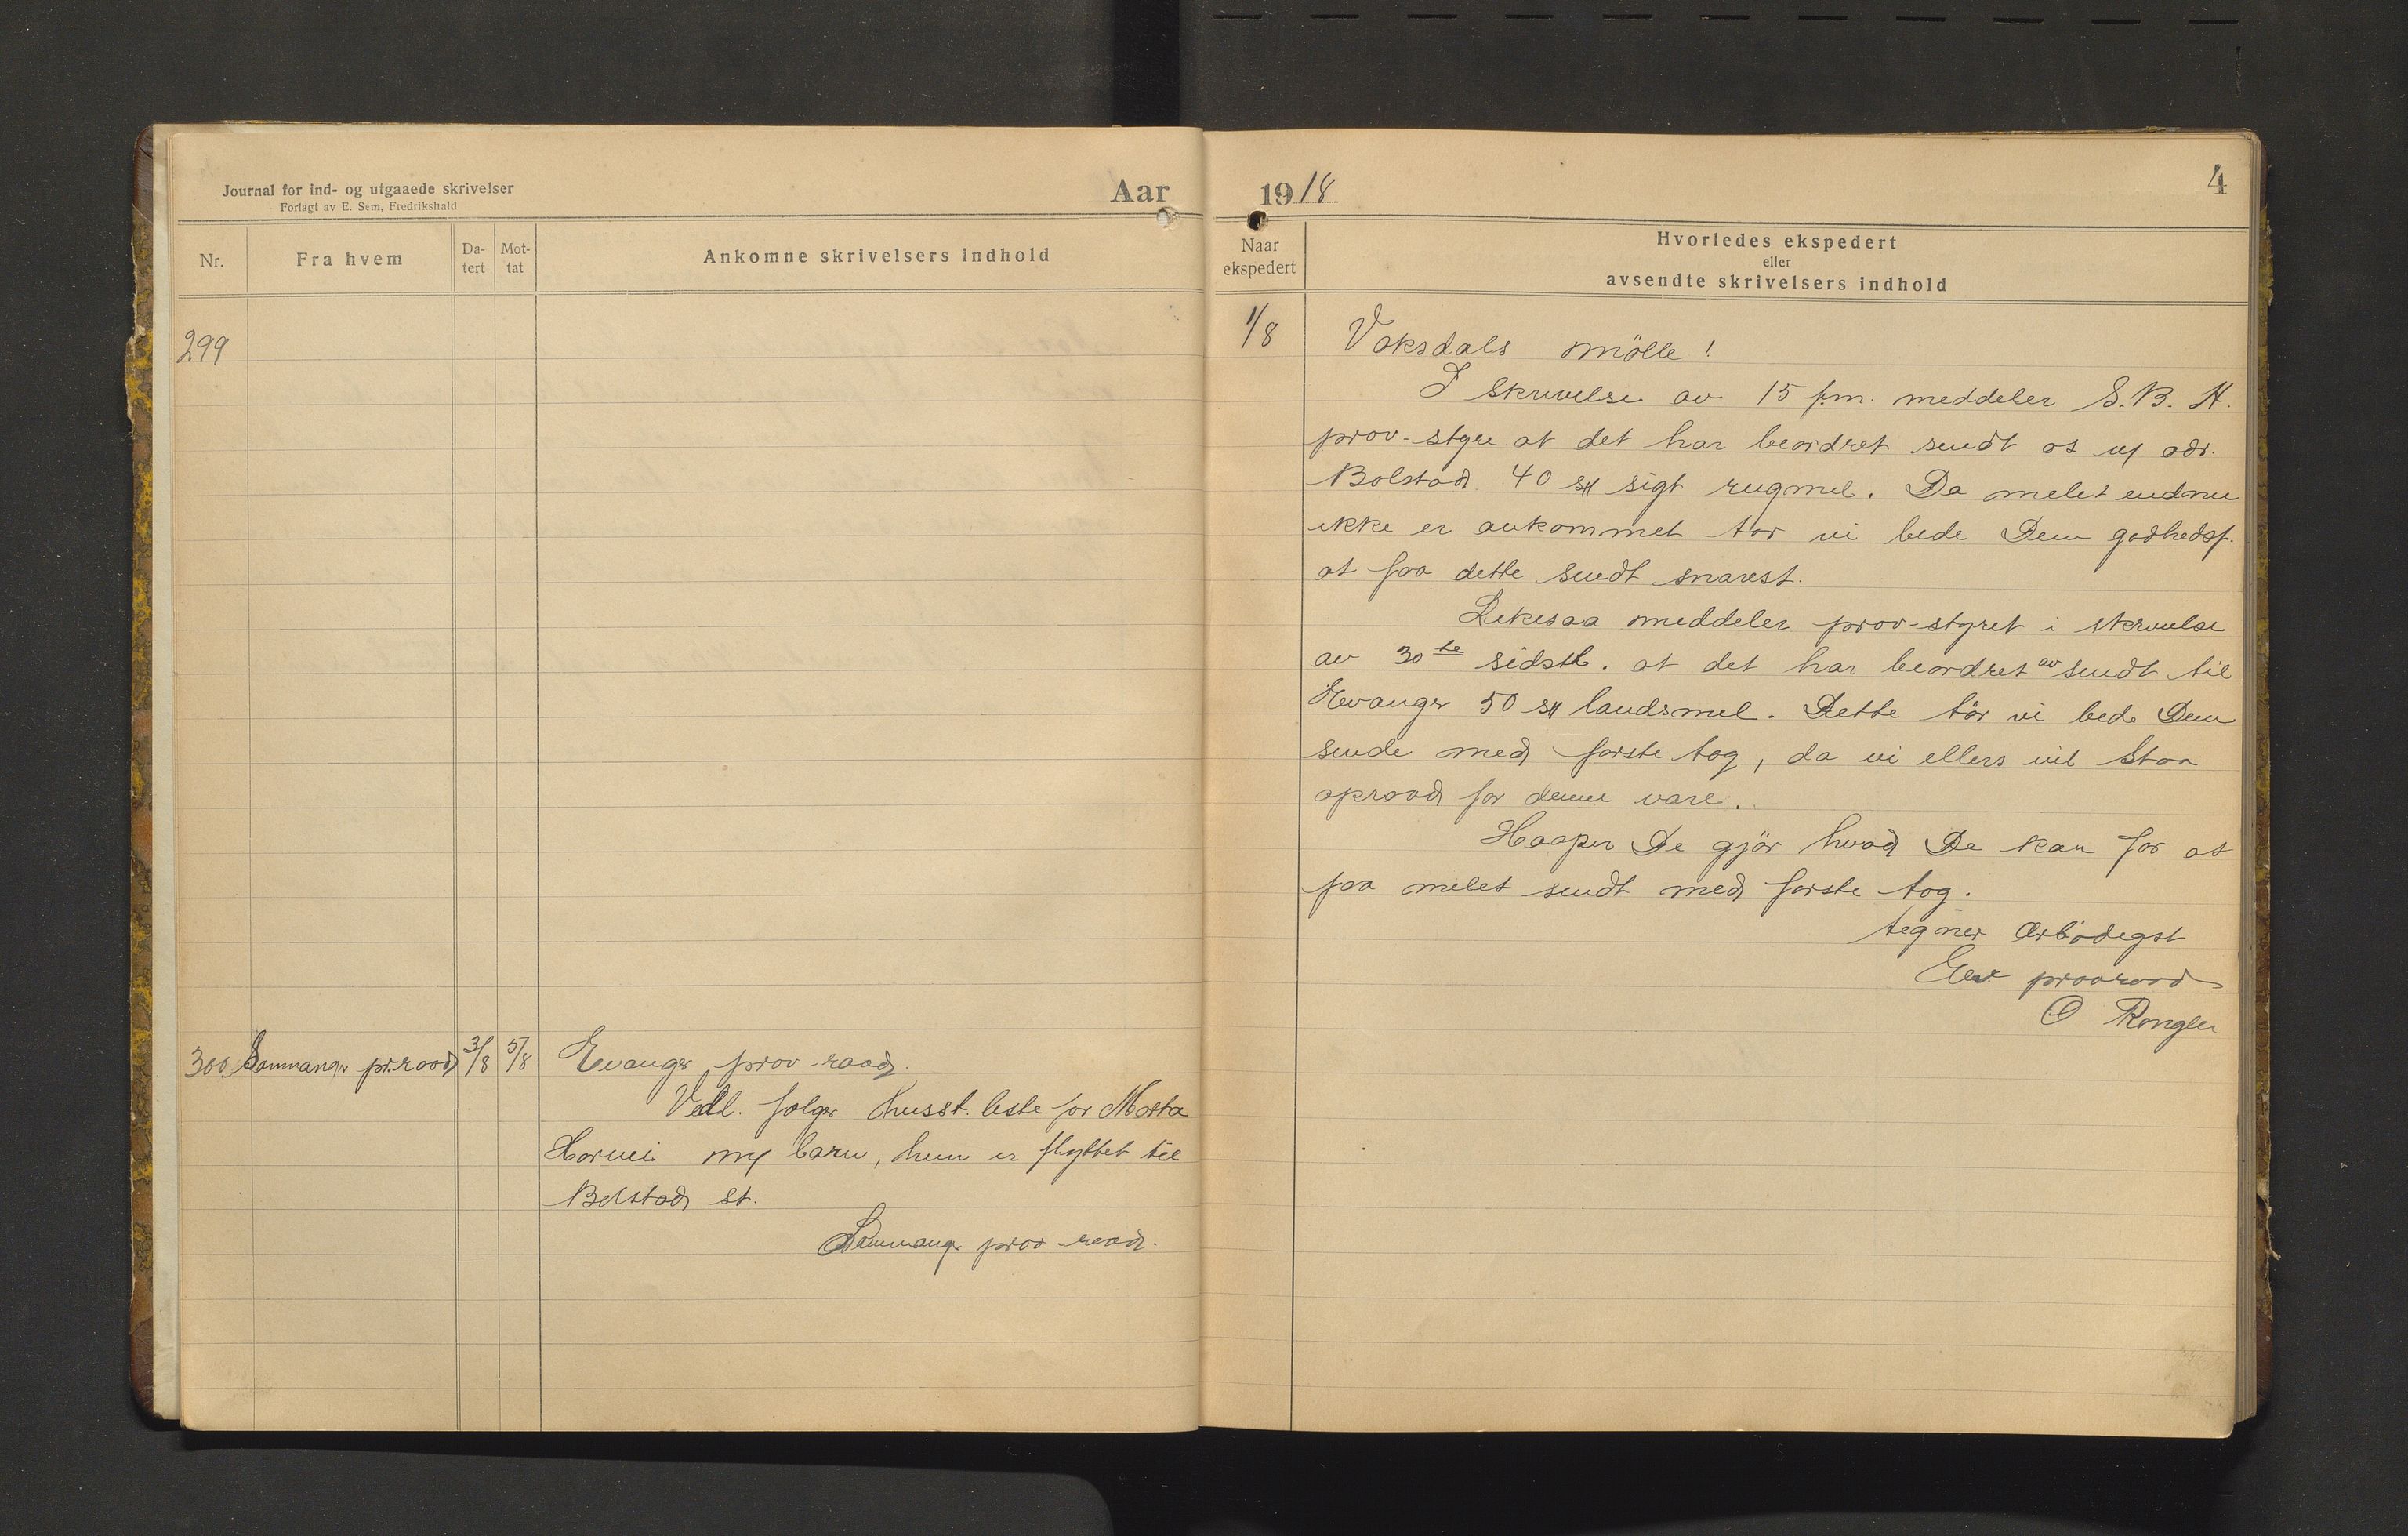 Journal for ind- og utgaaede skrivelser
Forlagt av E. Sem, Fredrikshald
Aar
Nr.
Fra hvem
Da-
tert
Mot-
tat
Ankomne skrivelsers indhold
299
300 Samnanger pr.raad 3/8 5/8 Evanger prov-raad.
Vedl. følger husst. liste for Marta
m/ barn, hun er flyttet til
Bolstad st.
Samnanger prov raad.
1918
4
Naar
ekspedert
Hvorledes ekspedert
eller
avsendte skrivelsers indhold
1/8 Vaksdals mölle!
I skrivelse av 15 f.m. meddeler S.B. H.
prov-styre at det har beordret sendt os m/ adr.
Bolstad 40 sk sigt rugmel. Da melet endnu
ikke er ankommet tør vi bede Dem godhedsf.
at faa dette sendt snarest.
Likesaa meddeler prov-styret i skrivelse
av 30te sidstl. at det har beordret avsendt til
Evanger 50 sk landsmel. Dette tör vi bede Dem
sende med første tog, da vi ellers vil staa
opraad for denne vare.
Haaper De gjör hvad De kan for at
faa melet sendt med første tog.
tegner ærbödigst
Ev. provraad
O Rongen